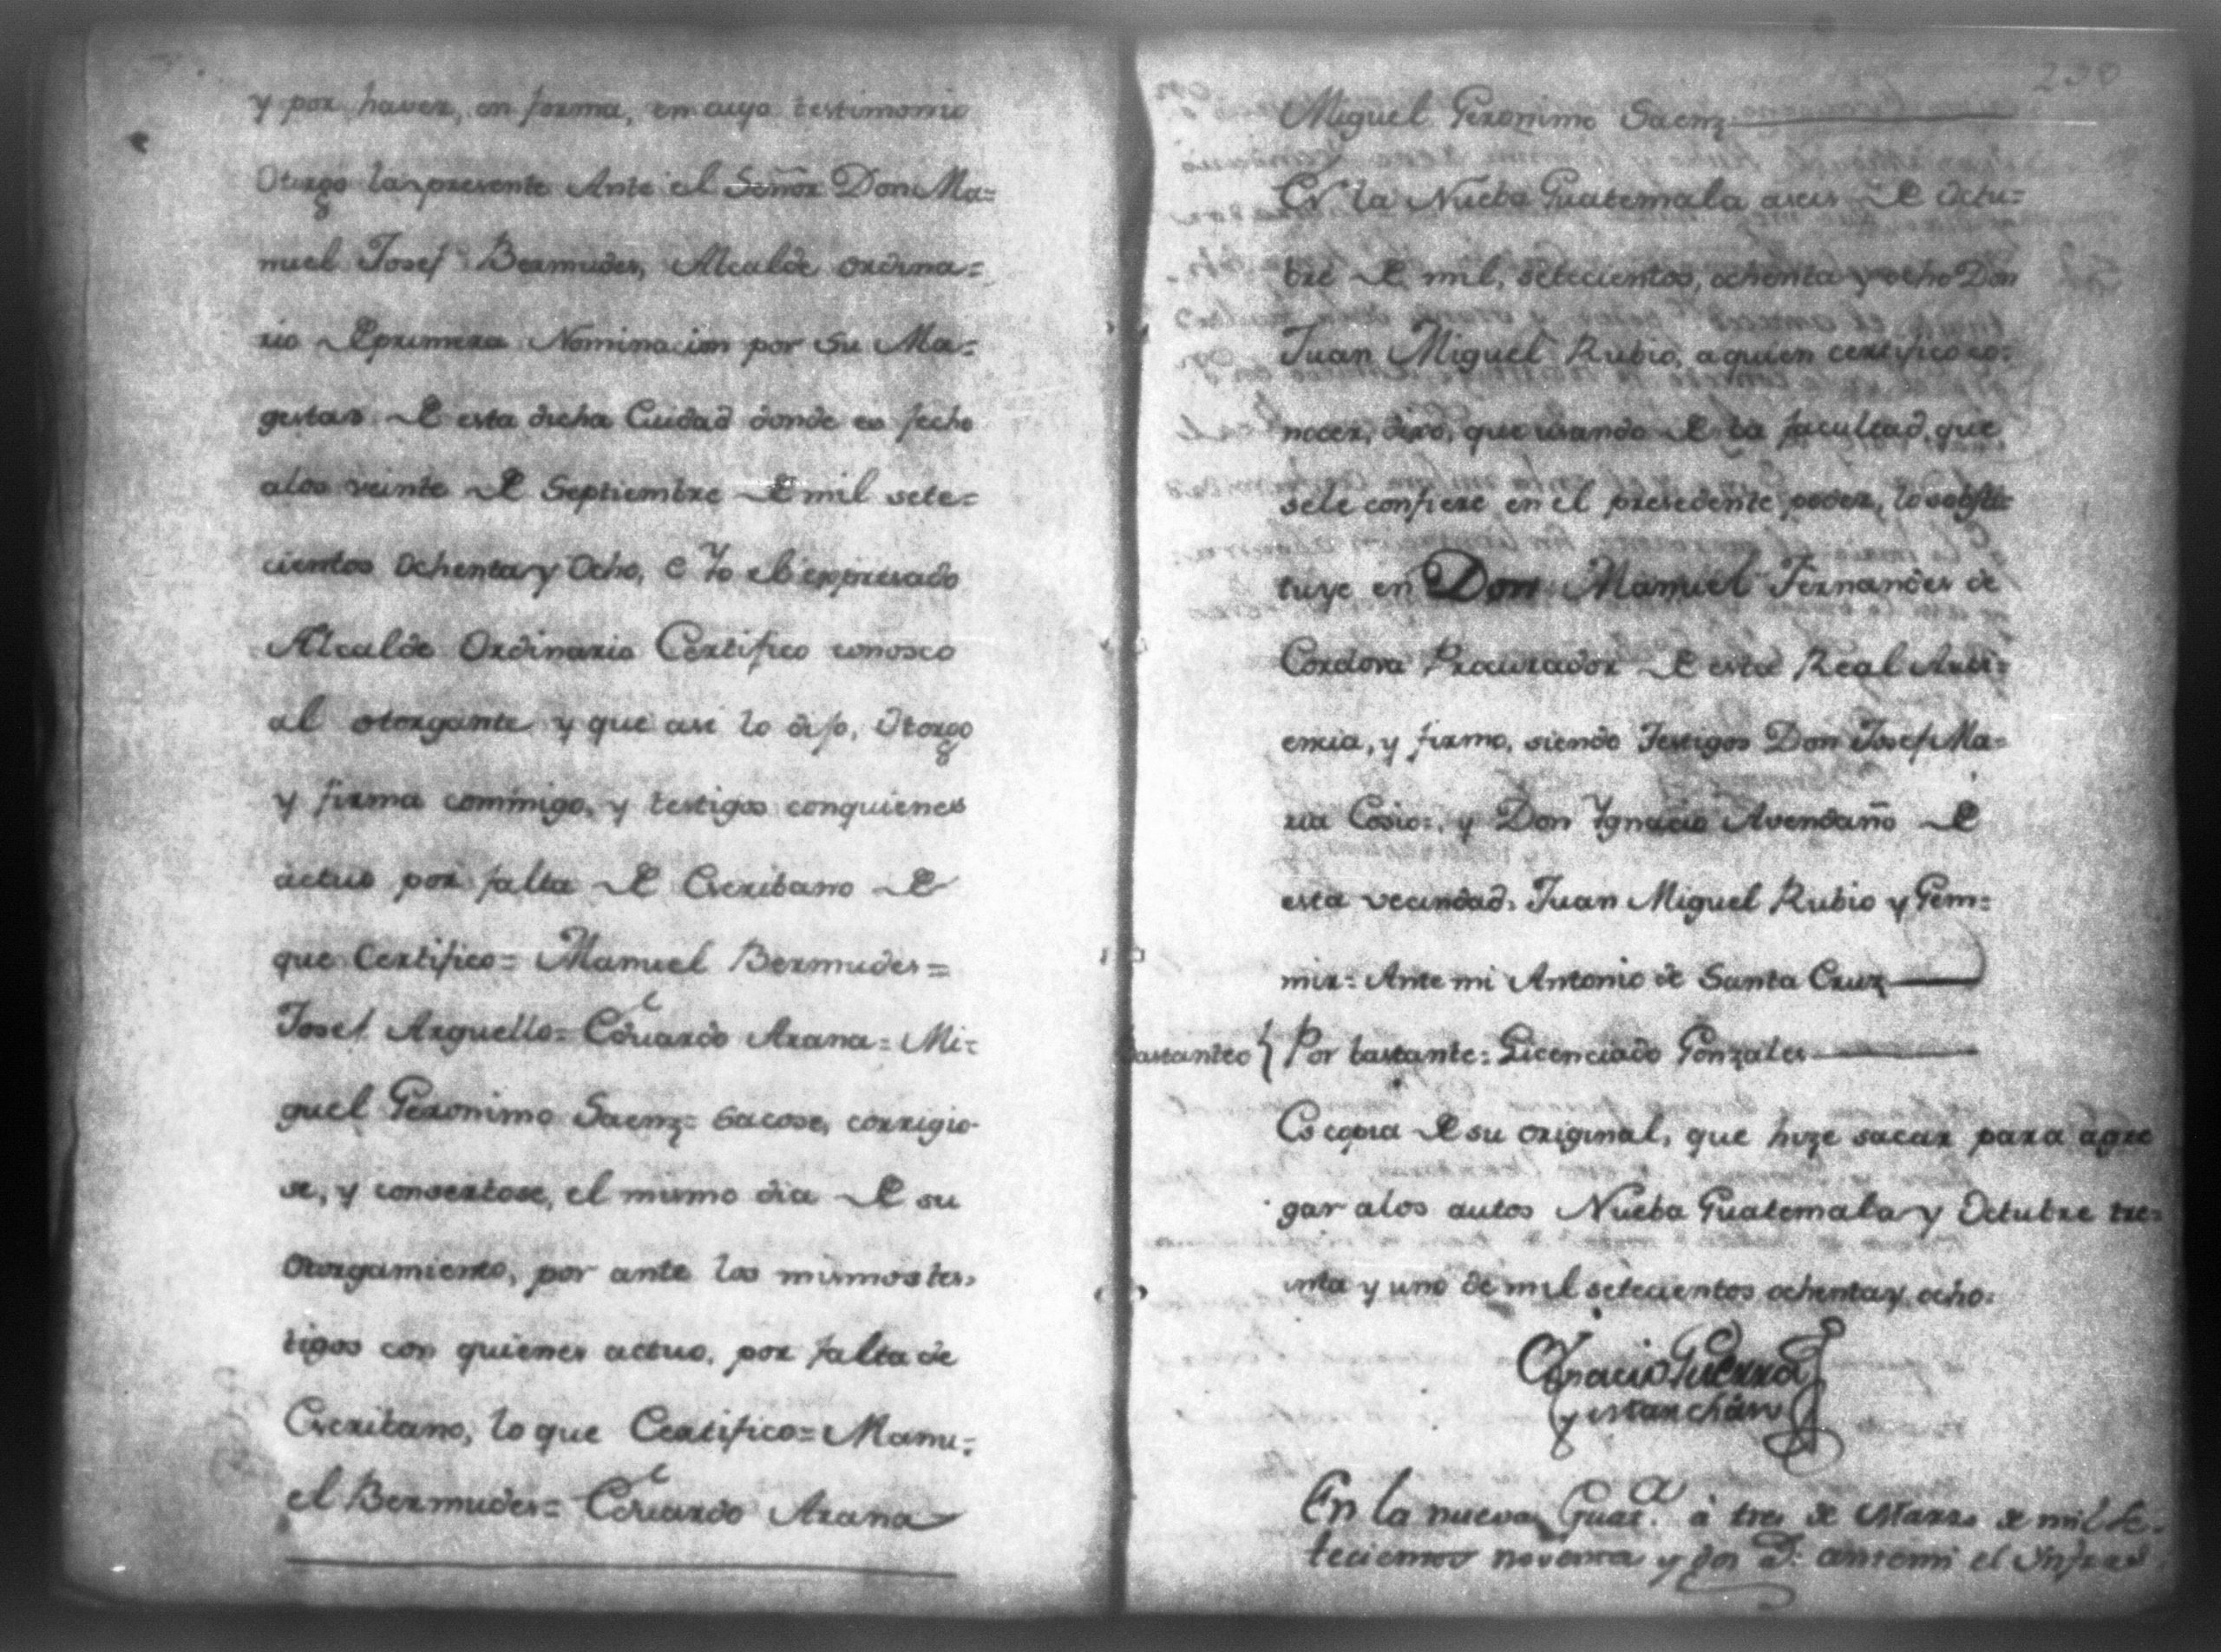 y por haver, en forma, en cuyo testimonio
Otorgo la presente Ante el Señor Don Ma=
nuel Josef Bermudes, Alcalde ordina=
rio de primera Nominacion por su Ma=
gestad de esta dicha Ciudad donde es fecho
alos veinte de Septiembre de mil sete=
cientos ochenta y ocho, e Yo el expresado
Alcalde Ordinario Certifico conosco
al otorgante y que asi lo dijo, Otorgo
y firma commigo, y testigos conquienes
actuo por falta de Escribano de
que Certifico= Manuel Bermudes=
Josef Arguello= Eduardo Arana= Mi=
guel Geronimo Saenz= Sacose, corrigio-
se, y consertose, el mismo dia de su
Otorgamiento, por ante los mismos tes=
tigos con quienes actuo, por falta de
Escribano, lo que Certifico= Manu=
el Bermudes= Eduardo Arana
230
Miguel Geronimo Saenz
En la Nueba Guatemala a seis de Octu=
bre de mil, setecientos, ochenta y ocho Don
Juan Miguel Rubio, a quien certifico co=
nocer, dixo, que usando de la facultad, que
sele confiere en el presedente poder, lo substi=
tuye en Don Manuel Fernandes de
Cordova Procurador de esta Real Audi=
encia, y firmo, siendo Testigos Don Josef Ma=
ria Cosio=, y Don Ygnacio Avendaño de
esta vecindad. Juan Miguel Rubio y Gem=
mir= Ante mi Antonio de Santa Cruz
bastanteo { Por bastante= Licenciado Gonzales
Es copia de su original, que hize sacar para agre
gar alos autos Nueba Guatemala y Octubre tre=
inta y uno de mil setecientos ochenta y ocho=
Ignacio Guerra
y Marchan
En la nueva Guat.a à tres de Marzo de mil se-
tecientos noventa y